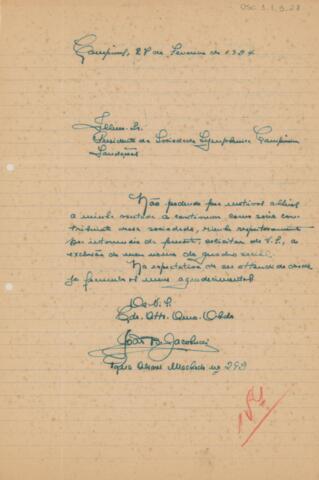 OSC 1.1.9.28
Campinas, 28 de Fevereiro de 1934
Illmo. Sr.
Presidente da Sociedade Symphonica Campineira
Saudações
Não podendo por motivos alheios
a minha vontade a continuar como socio con-
tribuinte dessa sociedade, venho respeitosamente
por intermedio da presente, solicitar de V. S., a
exclusão do meu nome do quadro social.
Na espectativa de ser attendido desde
ja formulo os meus agradecimentos
De V. S.
Cdo. Atto. Amo. Obdo
João B. Jacobucci
Alvares Machado nº 292